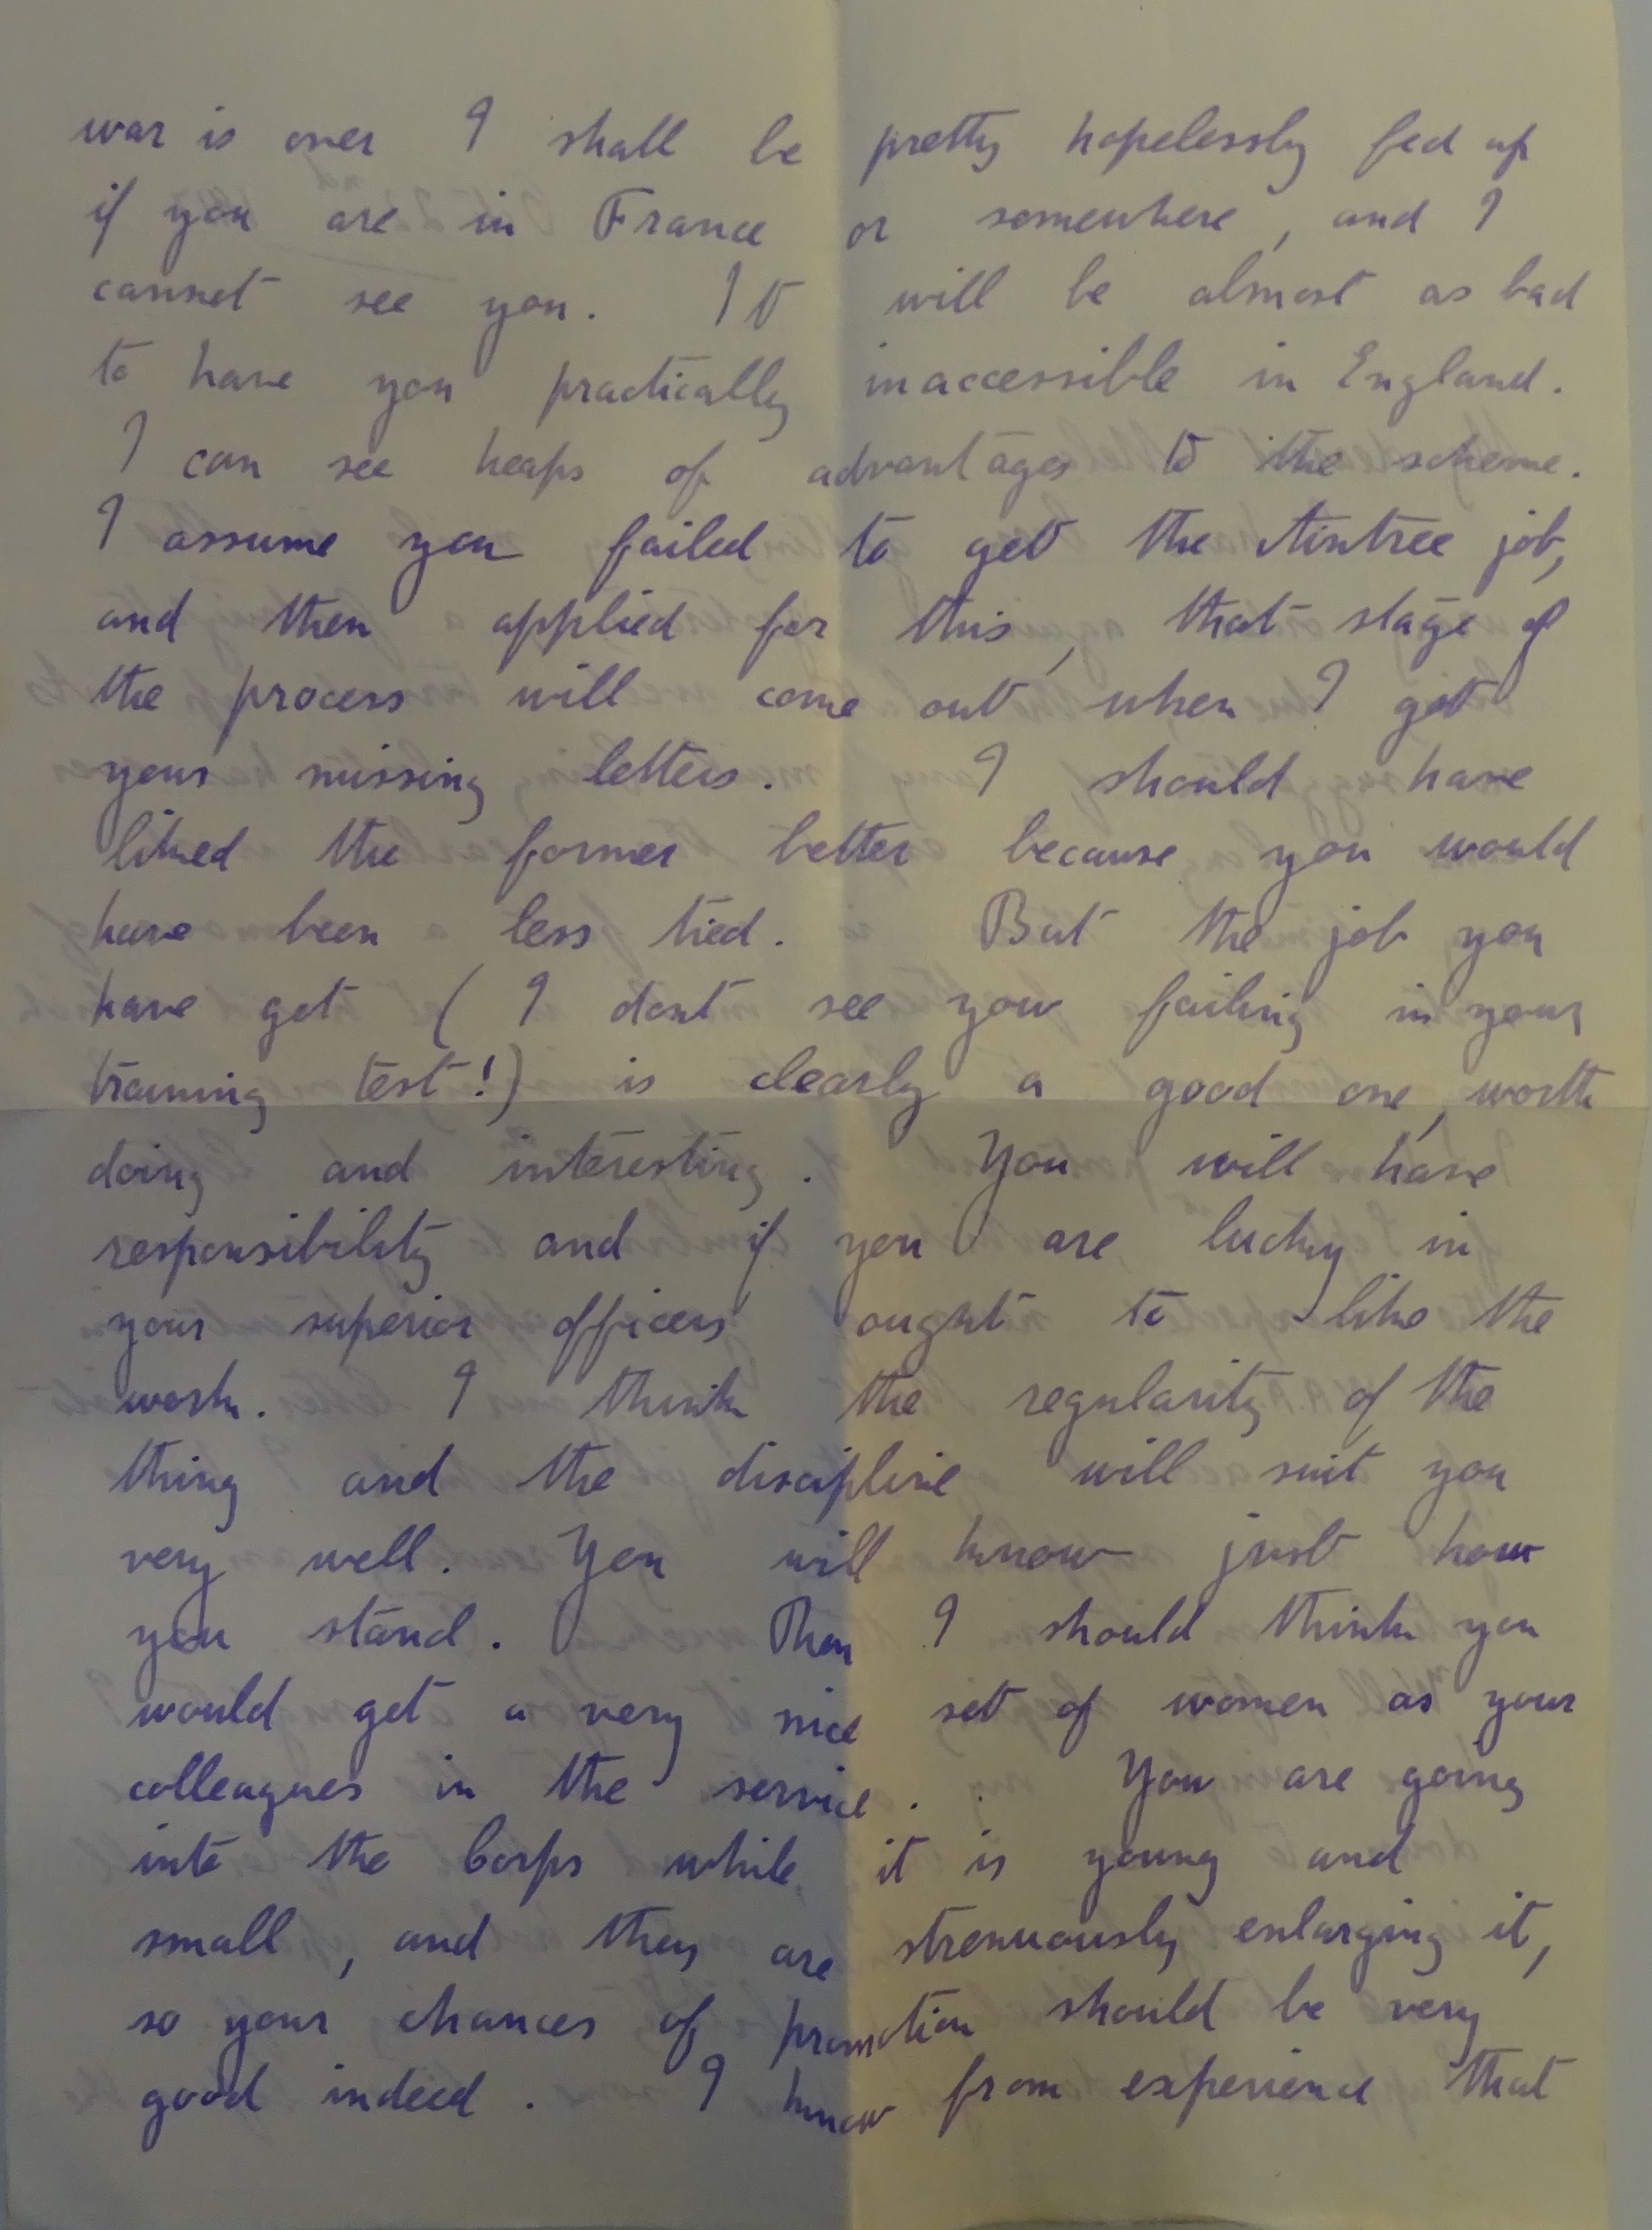 war is over I shall be pretty hopelessly fed up
if you are in France or somewhere, and I
cannot see you. It will be almost as bad
to have you practically inaccessible in England.
I can see heaps of advantages to the scheme.
I assume you failed to get the Aintree job,
and then applied for this, that stage of
the process will come out when I get
your missing letters. I should have
liked the former better because you would
have been less tied. But the job you
have got ( I dont see you failing in your
training test!) is clearly a good one, worth
doing and interesting. You will have
responsibility and if you are lucky in
your superior officers ought to like the
work. I think the regularity of the
thing and the discipline will suit you
very well. You will know just how
you stand. Then I should think you
would get a very nice set of women as your
colleagues in the service. You are going
into the Corps while it is young and
small, and they are strenuously enlarging it,
so your chances of promotion should be very
good indeed. I know from experience that